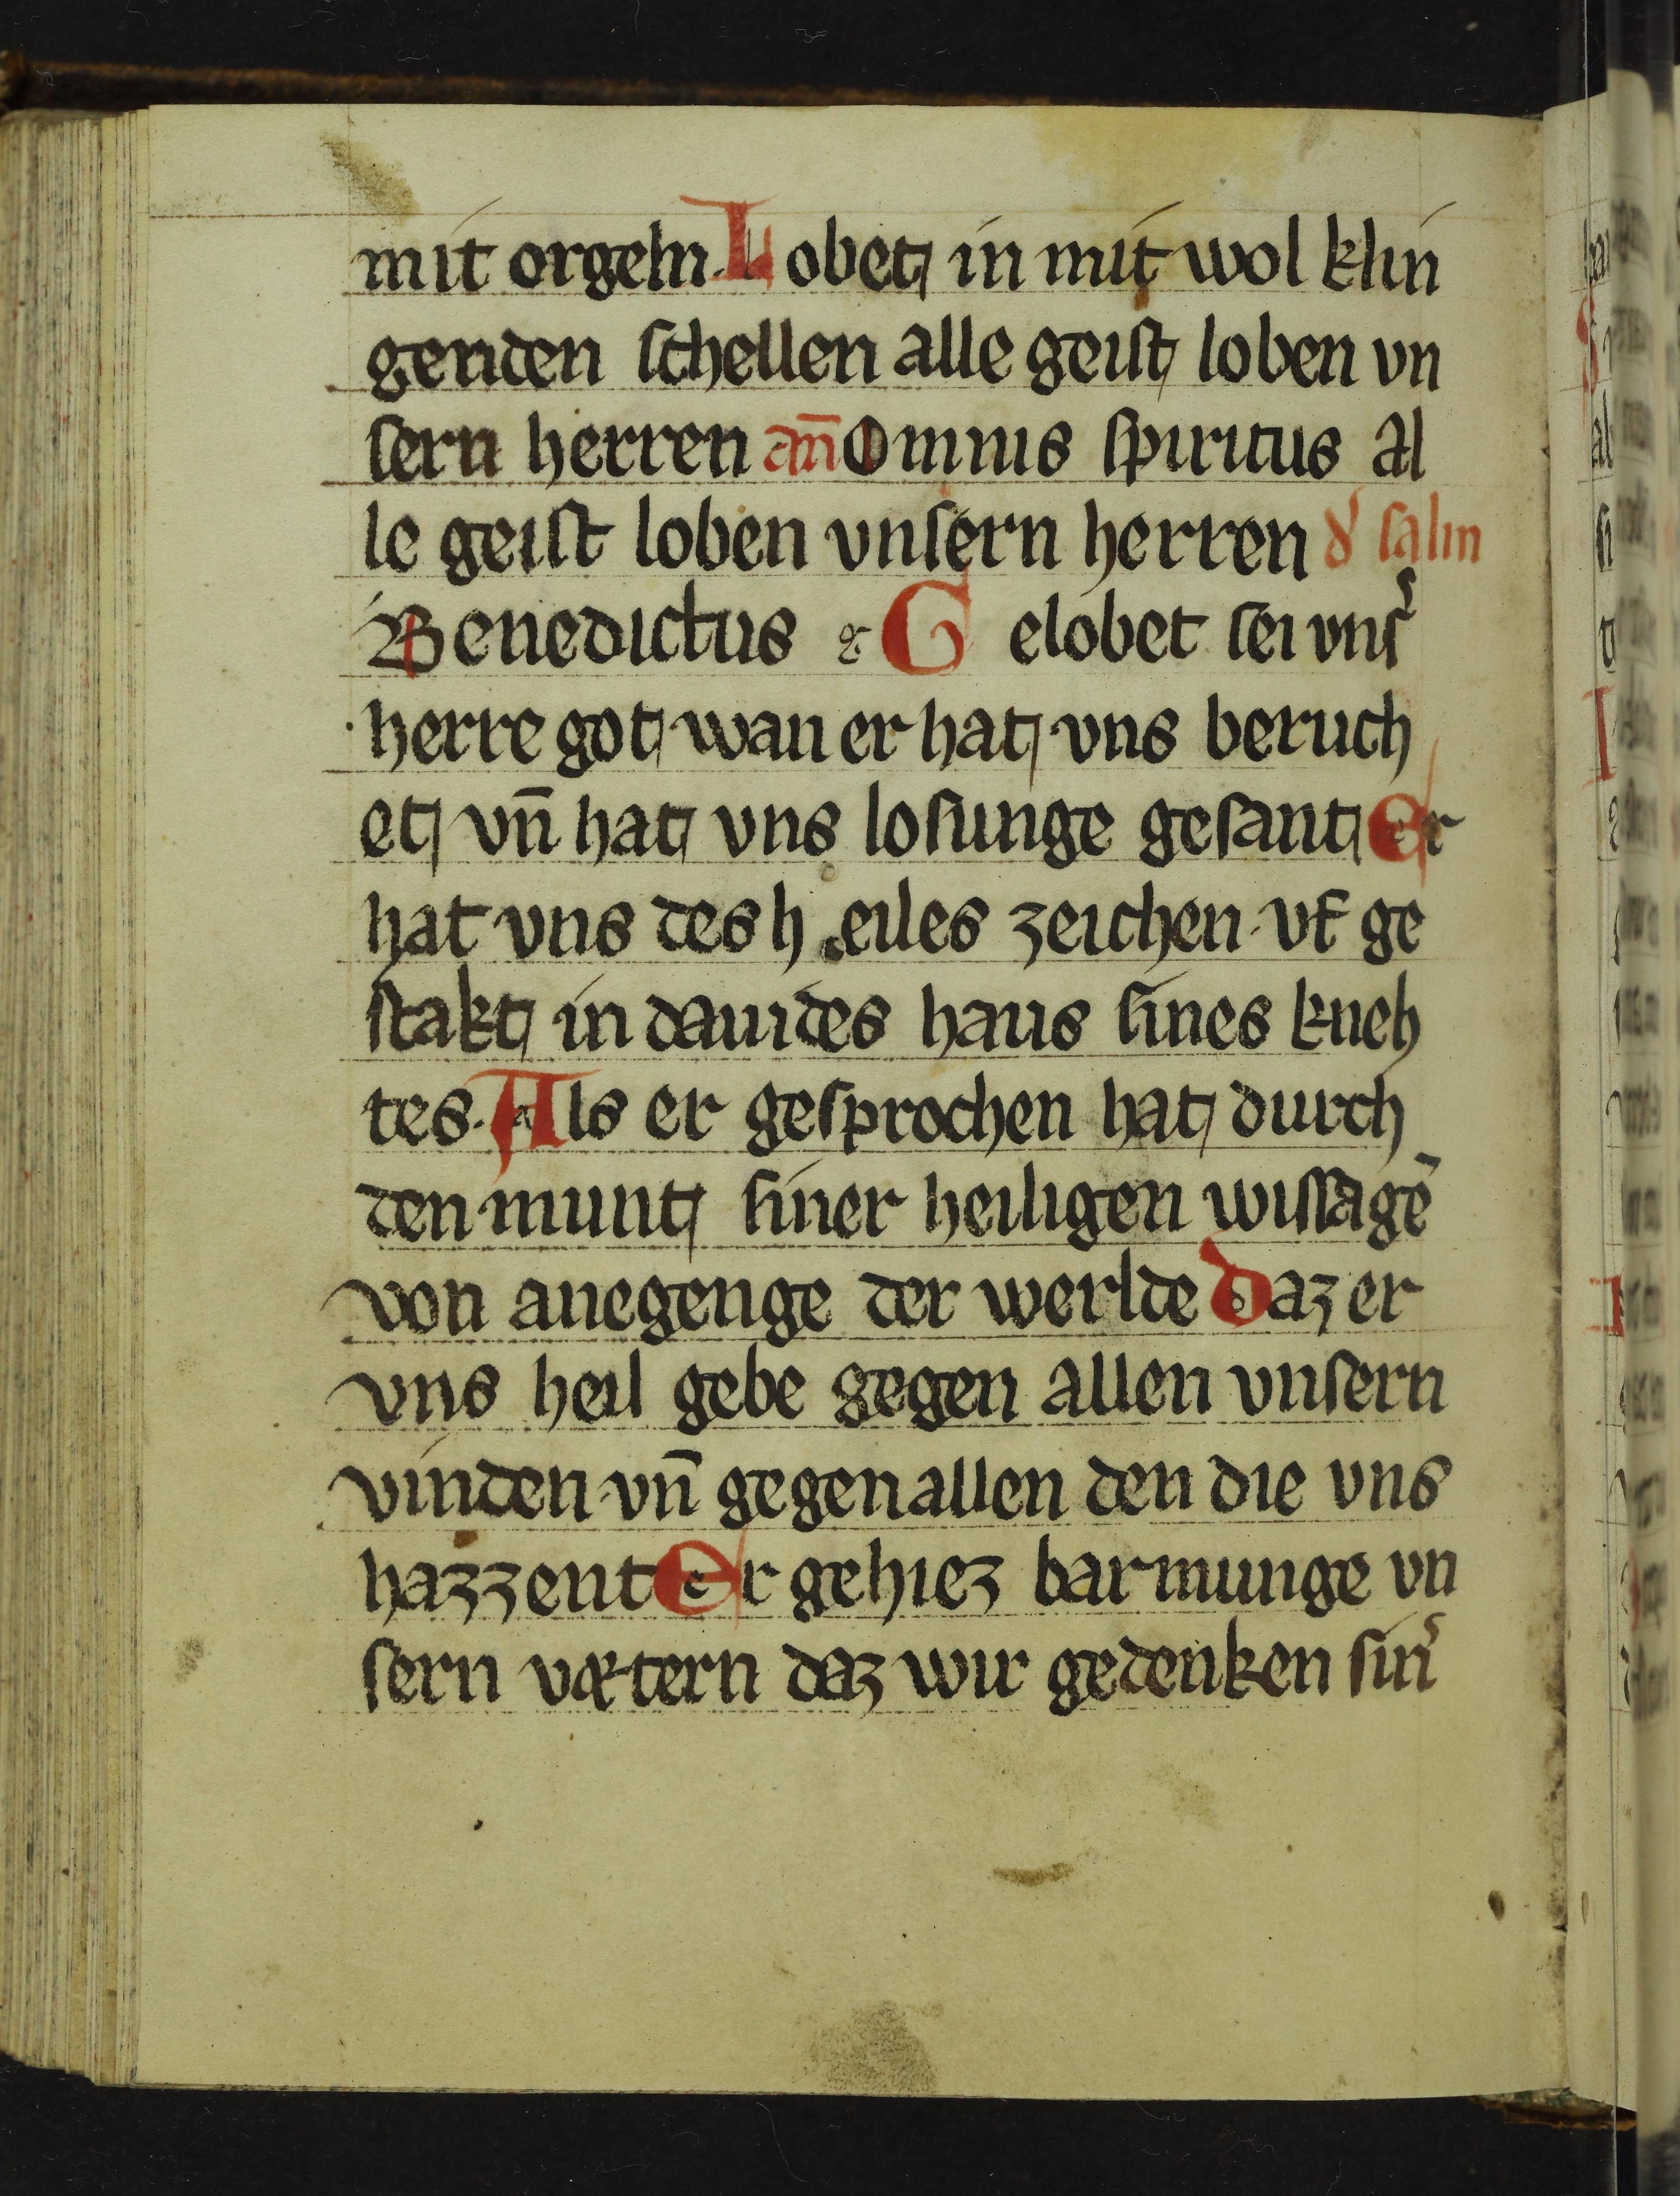 mit orgeln. Lobet in mit wol klin
genden schellen alle geist loben vn
sern herren an̄ Omnis spiritus al
le geist loben vnsern herren d' salm
Benedictus &c Gelobet sei vns'
herre got wan er hat vns beruch
et vn̄ hat vns losunge gesant Er
hat vns des heiles zeichen vf ge
stakt in dauides haus sines kneh
tes. Als er gesprochen hat durch
den munt siner heiligen wissagē
von anegenge der werlde Daz er
vns heil gebe gegen allen vnsern
vinden vn̄ gegen allen den die vns
hazzent Er gehiez barmunge vn
sern vætern daz wir gedenken sin'